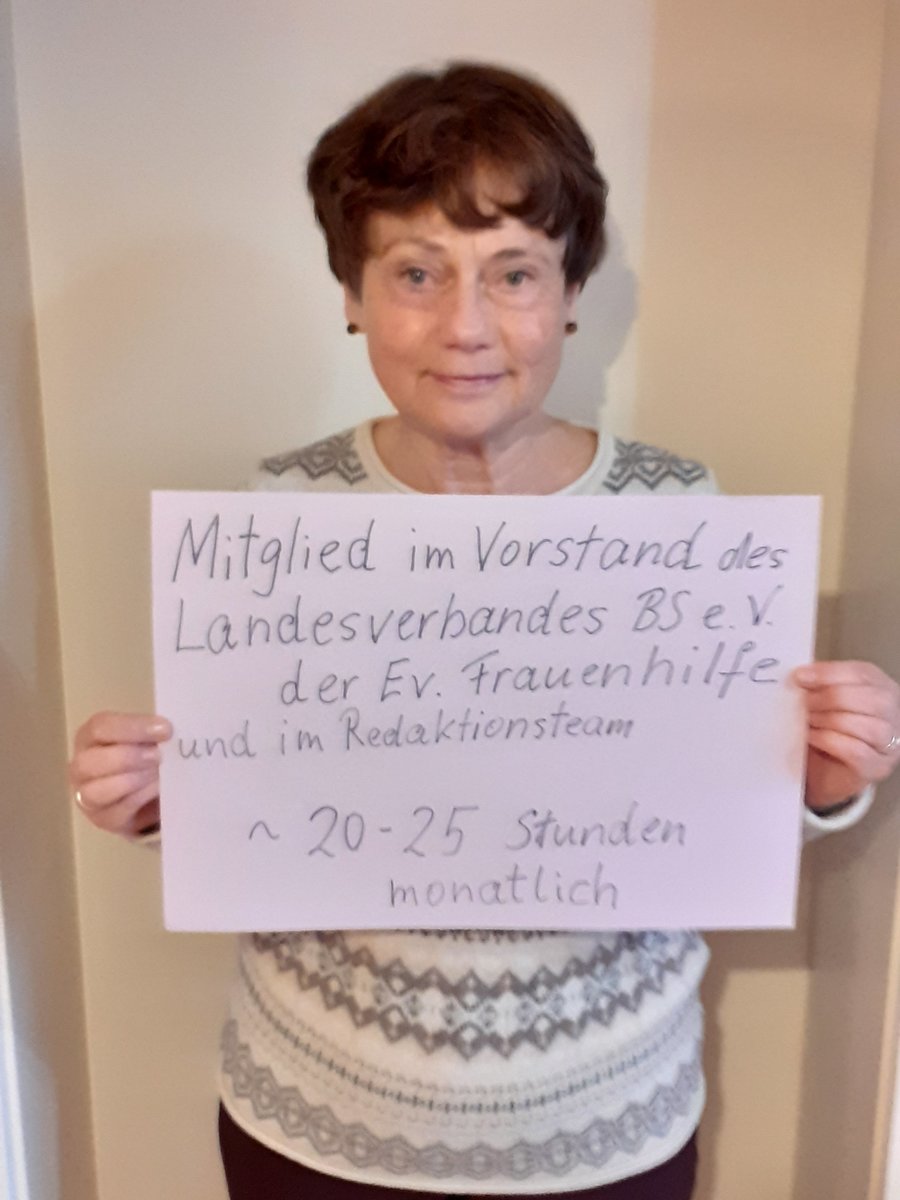 Mitglied im Vorstand des
Landesverbandes BS e.V.
der Ev. Frauenhilfe
und im Redaktionsteam
~ 20-25 Stunden
monatlich